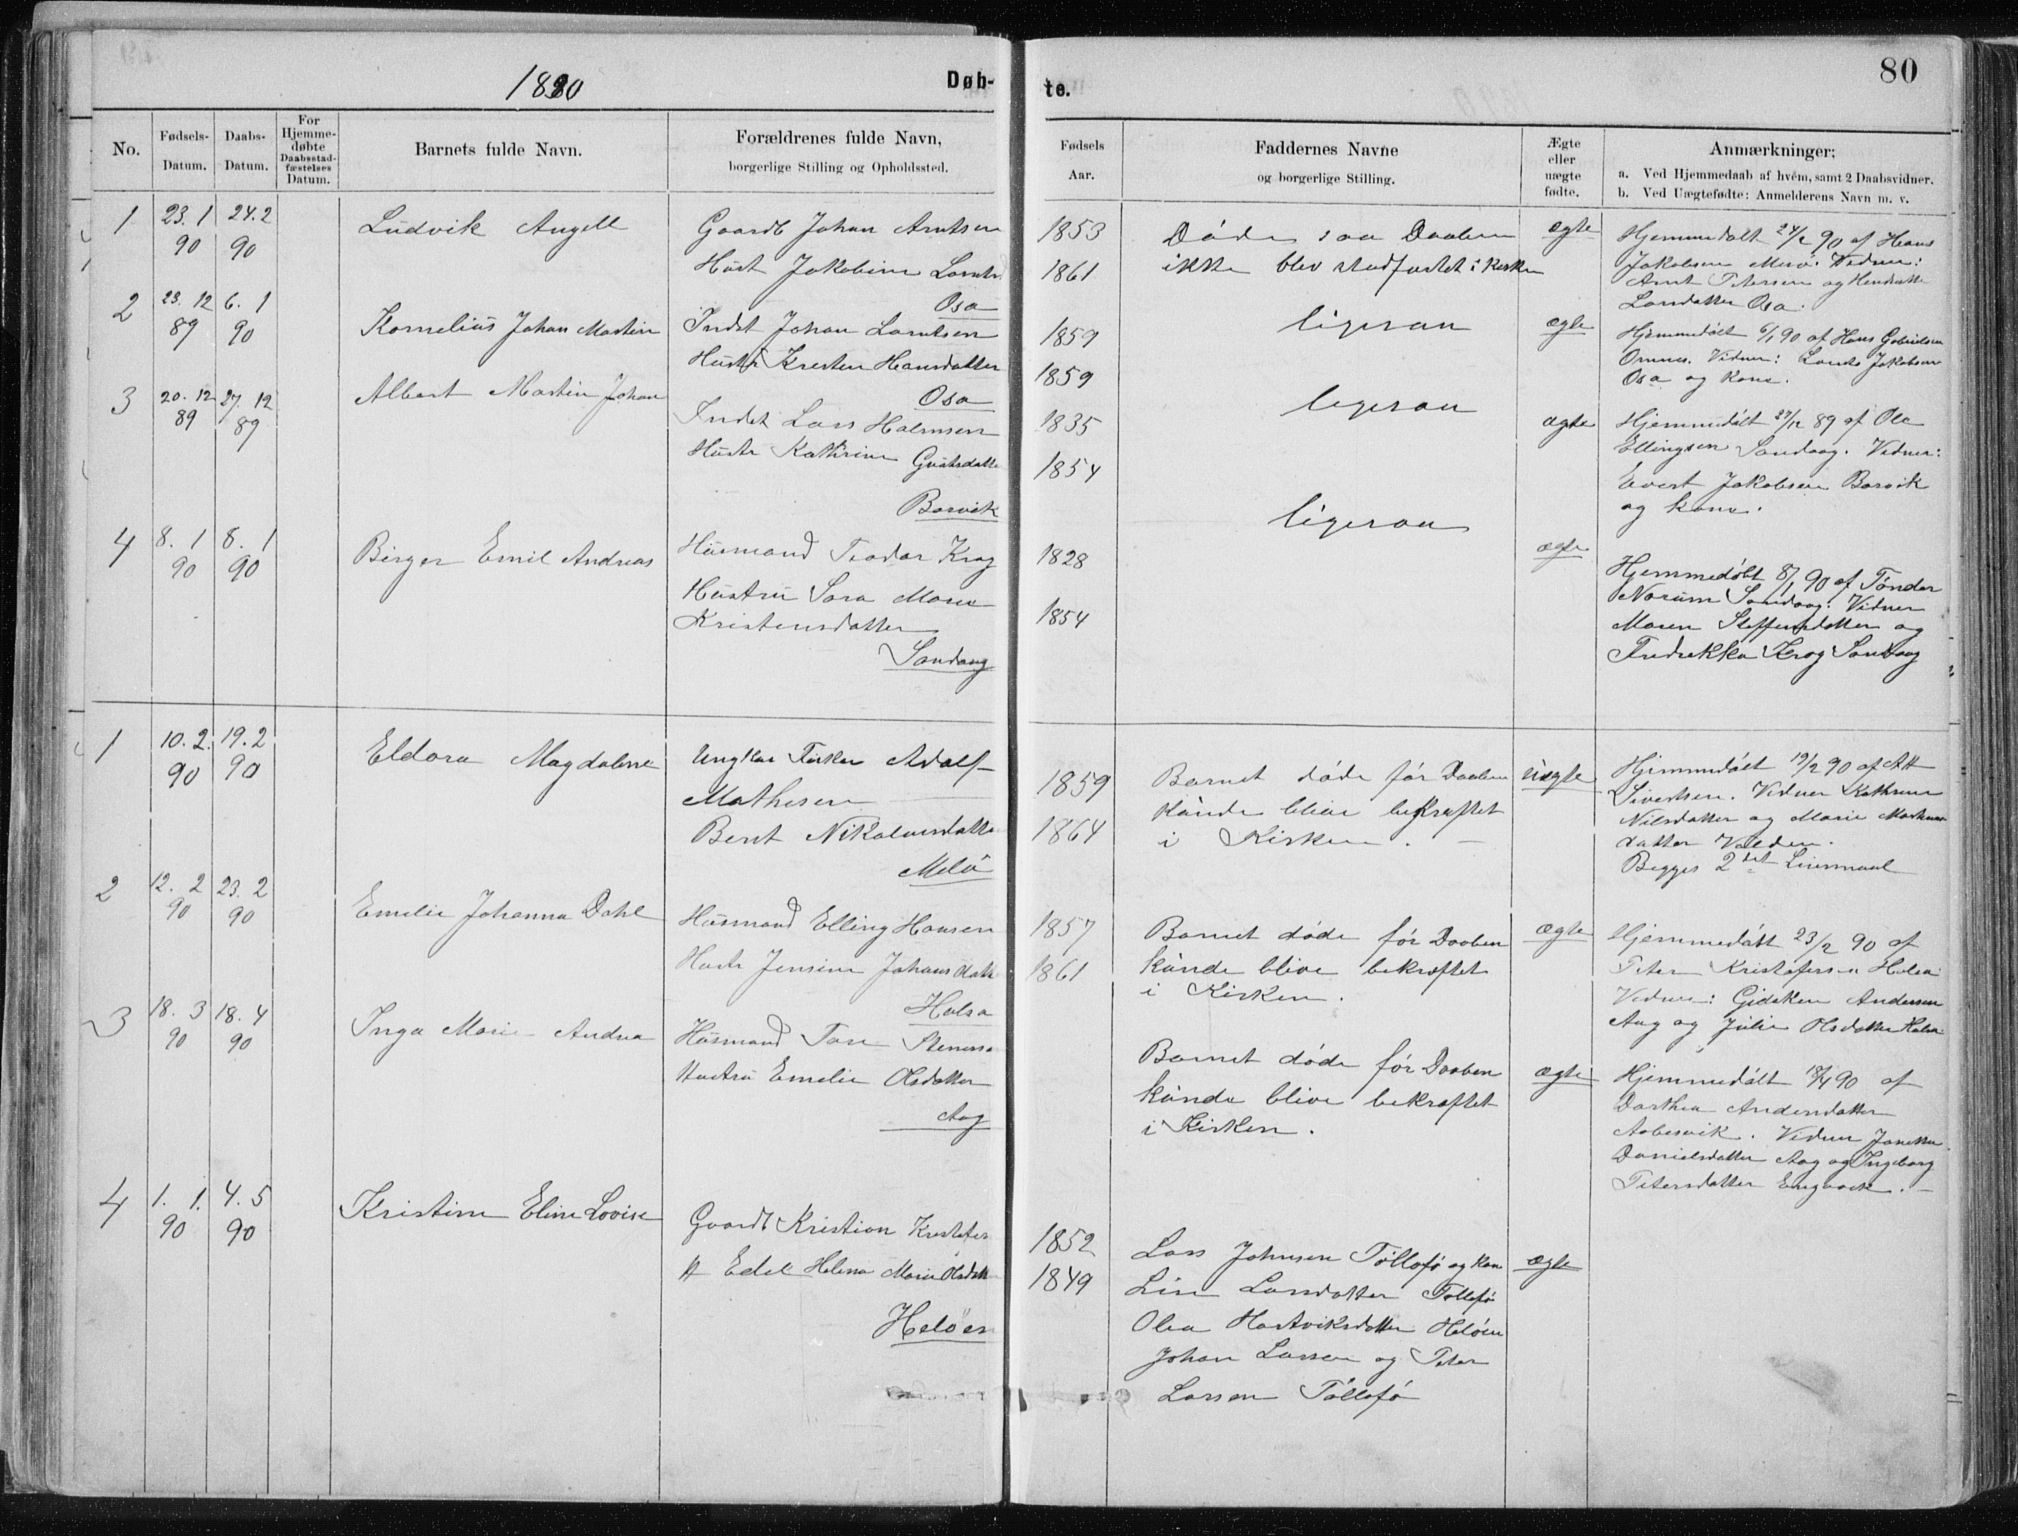 80
1890
Døb-
te.
No.
Fødsels-
Datum.
Daabs-
Datum.
For
Hjemme-
døbte
Daabsstad-
fæstelses
Datum.
Barnets fulde Navn.
Forældrenes fulde Navn,
borgerlige Stilling og Opholdssted.
Fødsels
Aar.
Faddernes Navne
og borgerlige Stilling.
Ægte
eller
uægte
fødte.
Anmærkninger:
a. Ved Hjemmedaab af hvem, samt 2 Daabsvidner.
b. Ved Uægtefødte: Anmelderens Navn m. v.
1
23. 1
90
24. 2
90
Ludvik Angell
Gaardb Johan Arntsen
Hust Jakobine
Osa
1853
1861
Døde saa Daaben
ikke blev stadfæstet i Kirken
ægte
Hjemmedøbt 24/2 90 af Hans
Jakobsen Vidner:
Arnt Petersen og
Larsdatter Osa.
2
23. 12
89
6. 1
90
Kornelius Johan Martin
Indst Johan Larntsen
Hustr Kresten Hansdatter
Osa
1859
1859
ligesaa
ægte
Hjemmedøbt 6/1 90 af Hans Gabrielsen
Ornnes. Vidner: Jakobsen
Osa og kone.
3
20. 12
89
27. 12
89
Albert Martin Johan
Indst Lars Halmsen
Hustr Kathrine
Barvik
1835
1854
ligesaa
ægte
Hjemmedøbt 27/12 89 af Ole
Ellingsen Sandaag. Vidner:
Evert Jakobsen Barvik
og kone.
4
8. 1
90
8. 1
90
Birger Emil Andreas
Husmand Teodor Krog
Hustru Sara Maria
Kristensdatter
Sandaag
1828
1854
ligesaa
ægte
Hjemmedøbt 8/1 90 af Tønder
Norum Sandaag. Vidner
Maren Steffensdatter og
Fredrikka Krog Sandaag
1
10. 2.
90
19. 2
90
Eldora Magdalena
Ungkar Fisker Adolf
Mathisen
Berit Nikolaisdatter
Melø
1859
1864
Barnet døde før Daaben
kunde blive bekræftet
i Kirken.
uægte
Hjemmedøbt 19/2 90 af
Sivertsen. Vidner Kathrine
Nilsdatter og Marie
datter Valden.
Begges 2det Leiermaal
2
12. 2
90
23. 2
90
Emelie Johanna Dahl
Husmand Elling Hansen
Hustr Jensine Johansdatt
Halsa
1857
1861
Barnet døde før Daaben
kunde blive bekræftet
i Kirken.
ægte
Hjemmedøbt 23/2 90 af
Peter Kristofersen Halsa
Vidner: Gideken Andersen
Aag og Julie Olsdatter Halsa
3
18. 3
90
18. 4
90
Inga Marie Andrea
Husmand
Hustru Emelie Olsdatter
Aag
Barnet døde før Daaben
kunde blive bekræftet
i Kirken.
ægte
Hjemmedøbt 18/4 90 af
Dorthea Andersdatter
Aabesvik. Vidner
Danielsdatter Aag og Ingeborg
Petersdatter Engavik.
4
1. 1.
90
4. 5
90
Kristine Eline Lovise
Gaardb Kristian Kristofers
H Edel Helena Marie Olsdatt
Heløen
1852
1849
Lars Johnsen Tøllefø og kone
Lise Larsdatter Tøllefø
Olea Hartviksdatter Heløen
Johan Larsen og Peter
Larsen Tøllefø
ægte